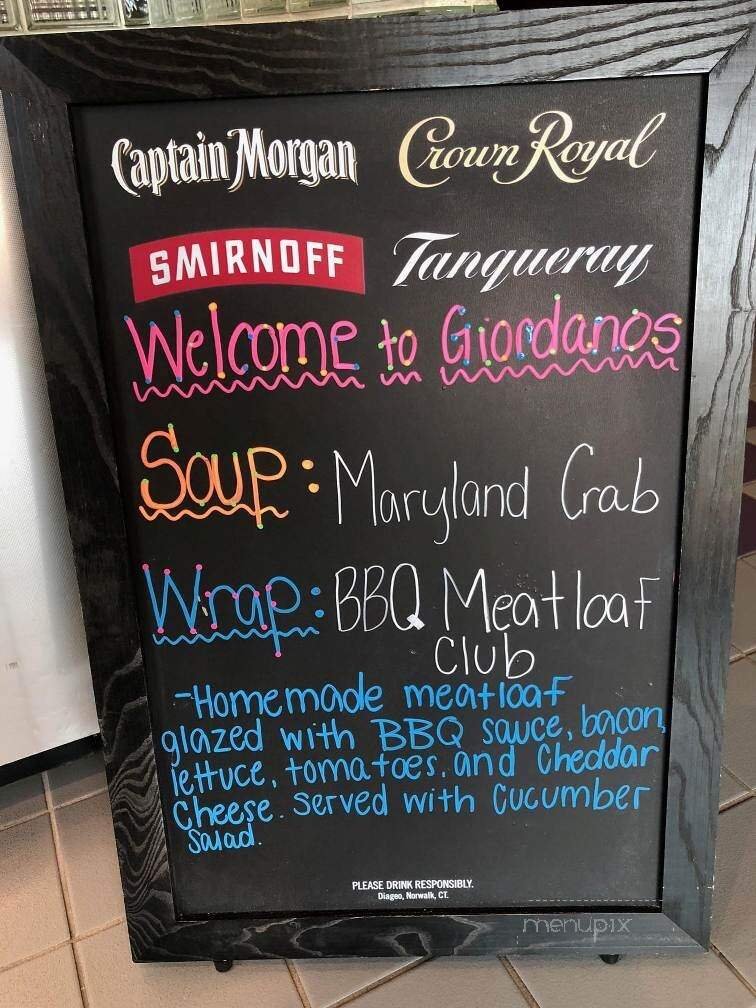 Captain Morgan Crown Royal
SMIRNOFF Tanqueray
Welcome to Giordanos
Soup: Maryland Crab
Wrap: BBQ Meatloaf
Club
-Homemade meatloaf
glazed with BBQ sauce, bacon,
lettuce, tomatoes, and Cheddar
Cheese. Served with Cucumber
Salad.
PLEASE DRINK RESPONSIBLY.
Diageo, Norwalk, CT.
menupix